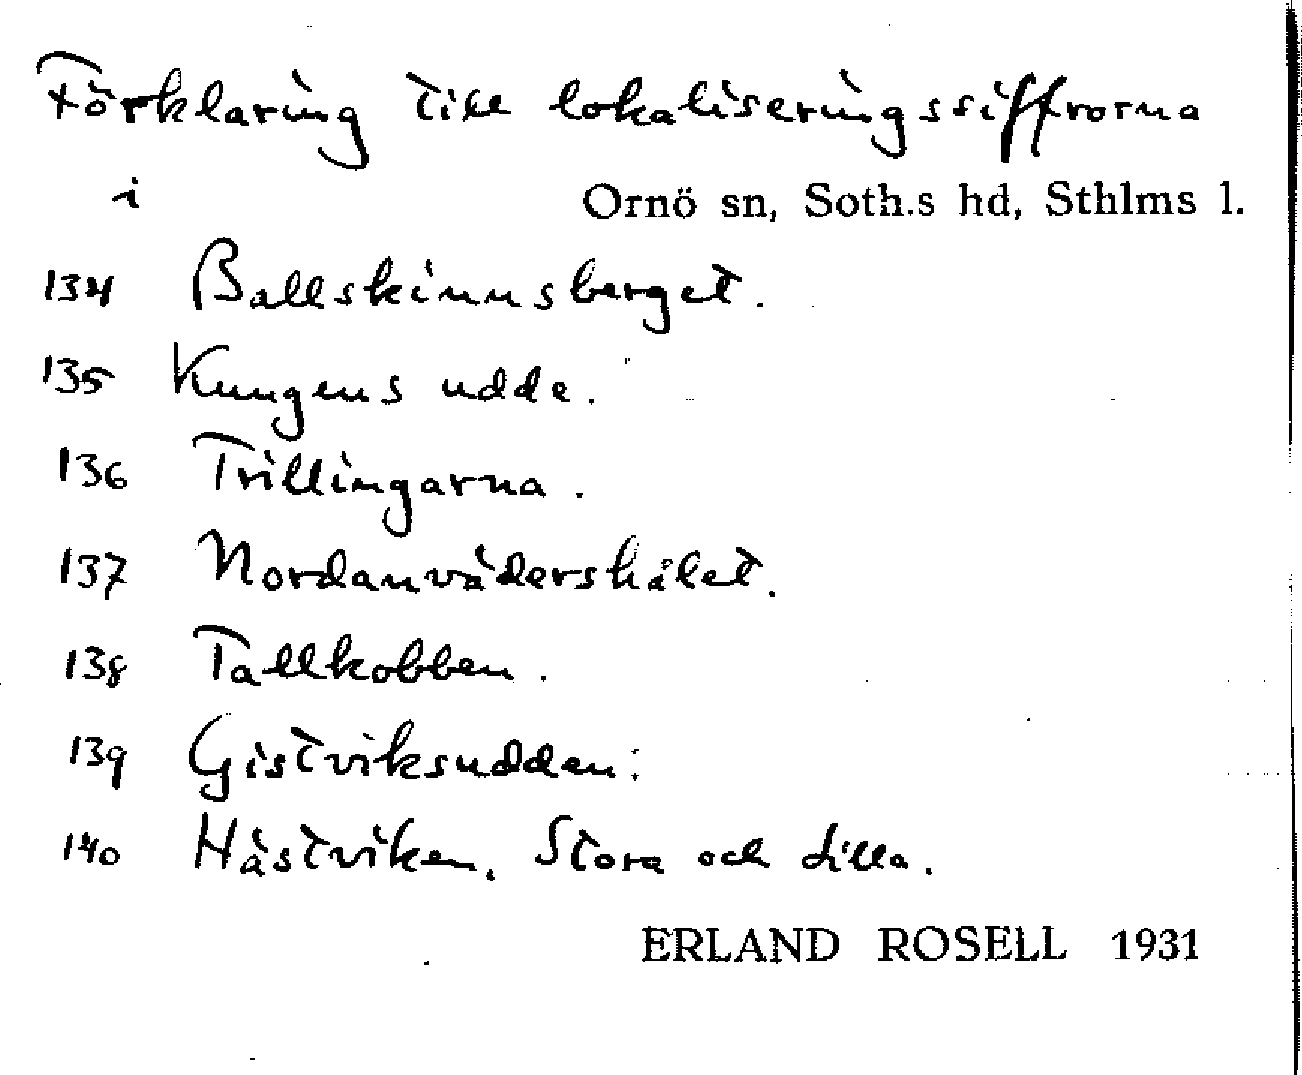 Förklaring till lokaliseringssiffrorna
i Ornö sn, Soth.s hd, Sthlms l.
134 Ballskinnsberget.
135 Kungens udde.
136 Trillingarna.
137 Nordanvädershålet.
138 Tallkobben.
139 Gistviksudden.
140 Hästviken, Stora och Lilla.
ERLAND ROSELL 1931